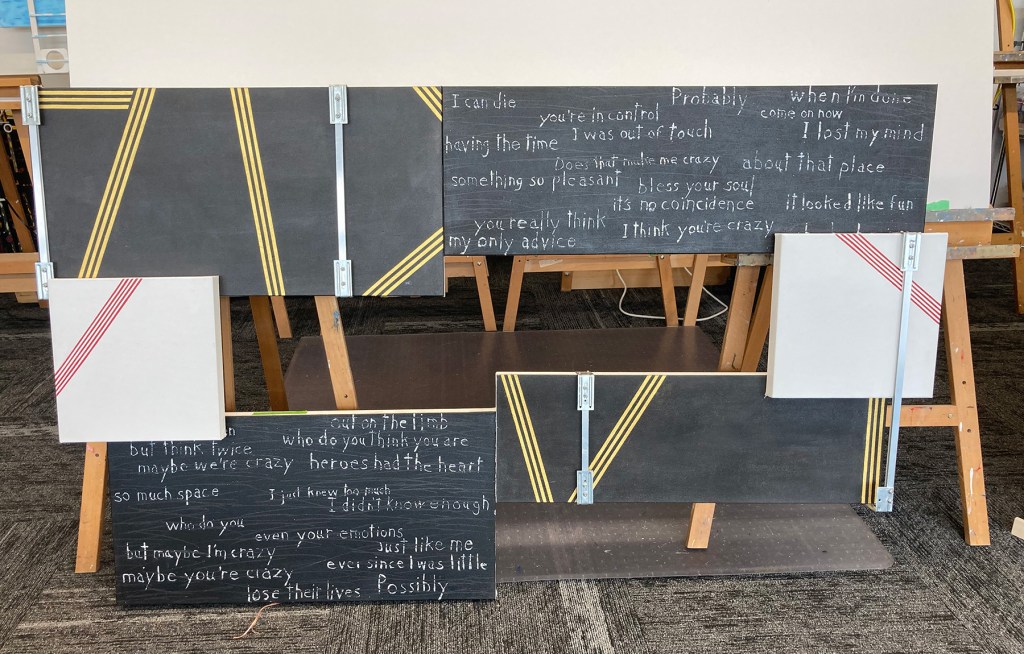 I can die
Probably
when I'm done
you're in control
come on now
I was out of touch
I lost my mind
having the time
Does that make me crazy
about that place
something so pleasant
bless your soul
it's no coincidence
it looked like fun
you really think
I think you're crazy
my only advice
out on the limb
but think twice
who do you think you are
maybe we're crazy
heroes had the heart
so much space
I just knew too much
I didn't know enough
who do you
even your emotions
but maybe I'm crazy
Just like me
ever since I was little
maybe you're crazy
lose their lives
Possibly